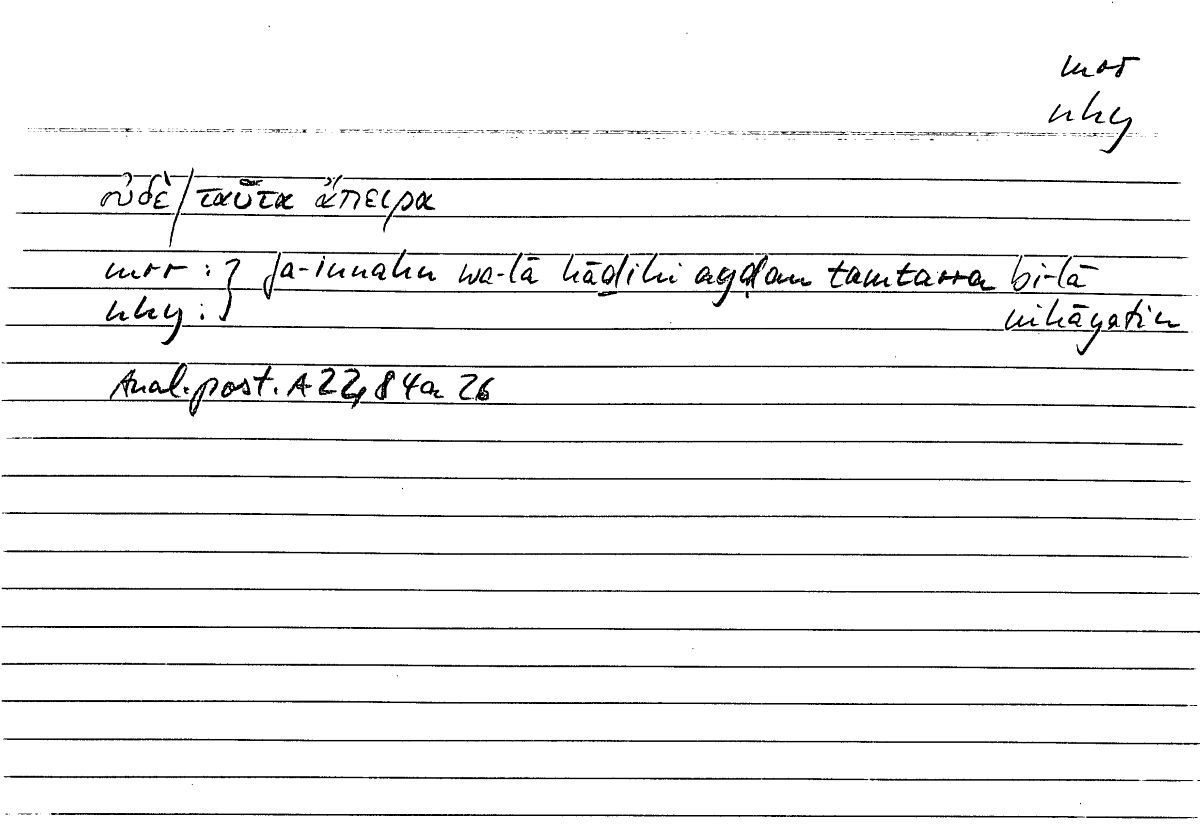 mrr
nhy
οὐδὲ/ταῦτα ἄπειρα
mrr : } fa-innahu wa-lā hāḏihi ayḍan tamtarra bi-lā
nhy : } nihāyatin
Anal. post. A 22, 84a 26